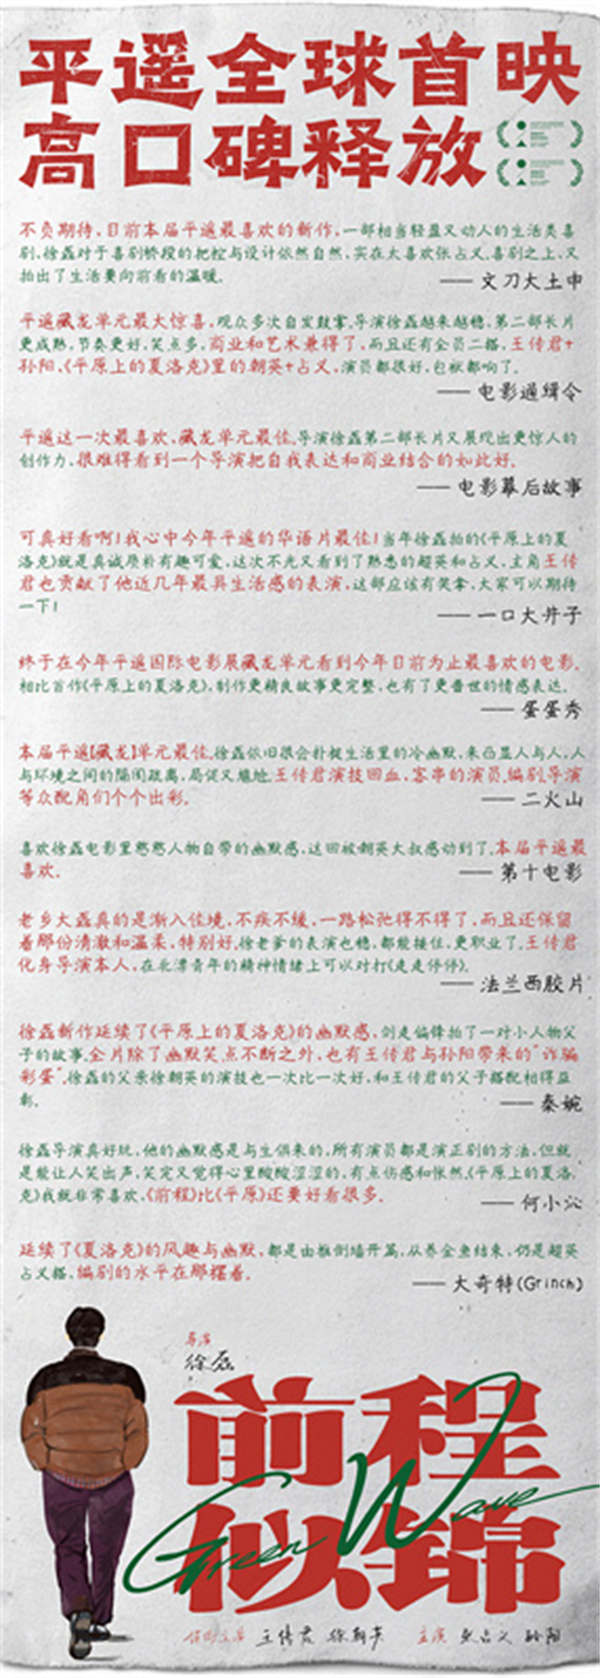 平遥全球首映
高口碑释放
不负期待,目前本届平遥最喜欢的新作,一部相当轻盈又动人的生活类喜
剧,徐磊对于喜剧桥段的把控与设计依然自然,实在太喜欢张占义,喜剧之上,又
拍出了生活要向前看的温暖。
——文刀大土申
平遥藏龙单元最大惊喜,观众多次自发鼓掌,导演徐磊越来越稳,第二部长片
更成熟,节奏更好,笑点多,商业和艺术兼得了,而且还有全员二搭,王传君+
孙阳,《平原上的夏洛克》里的朝英+占义,演员都很好,包袱都响了。
——电影通缉令
平遥这一次最喜欢、藏龙单元最佳,导演徐磊第二部长片又展现出更惊人的
创作力,很难得看到一个导演把自我表达和商业结合的如此好。
——电影幕后故事
可真好看啊!我心中今年平遥的华语片最佳!当年徐磊拍的《平原上的夏
洛克》就是真诚质朴有趣可爱,这次不光又看到了熟悉的超英和占义,主角王传
君也贡献了他近几年最具生活感的表演,这部应该有奖拿,大家可以期待
一下!
——一口大井子
终于在今年平遥国际电影展藏龙单元看到今年目前为止最喜欢的电影,
相比首作《平原上的夏洛克》,制作更精良故事更完整,也有了更普世的情感表达。
——蛋蛋秀
本届平遥[藏龙]单元最佳,徐磊依旧很会扑捉生活里的冷幽默,来凸显人与人,人
与环境之间的隔阂疏离,局促又尴尬,王传君演技回血,客串的演员,编剧,导演
等众配角们个个出彩。
——二火山
喜欢徐磊电影里憨憨人物自带的幽默感,这回被朝英大叔感动到了,本届平遥最
喜欢。
——第十电影
老乡大磊真的是渐入佳境,不疾不缓,一路松弛得不得了,而且还保留
着那份清澈和温柔,特别好,徐老爹的表演也稳,都能接住,更职业了,王传君
化身导演本人,在北漂青年的精神情绪上可以对打《走走停停》。
——法兰西胶片
徐磊新作延续了《平原上的夏洛克》的幽默感,剑走偏锋拍了一对小人物父
子的故事,全片除了幽默笑点不断之外,也有王传君与孙阳带来的"诈骗
彩蛋",徐磊的父亲徐朝英的演技也一次比一次好,和王传君的父子搭配相得益
彰。
——秦婉
徐磊导演真好玩,他的幽默感是与生俱来的,所有演员都是演正剧的方法,但就
是能让人笑出声,笑完又觉得心里酸酸涩涩的,有点伤感和怅然,《平原上的夏洛
克》我就非常喜欢,《前程》比《平原》还要好看很多。
——何小沁
延续了《夏洛克》的风趣与幽默,都是由推倒墙开篇,从养金鱼结束,仍是超英
占义搭,编剧的水平在那摆着。
——大奇特(Grinch)
导演
徐磊
前程
似锦
Green Wave
王传君 徐朝英 主演 张占义 孙阳